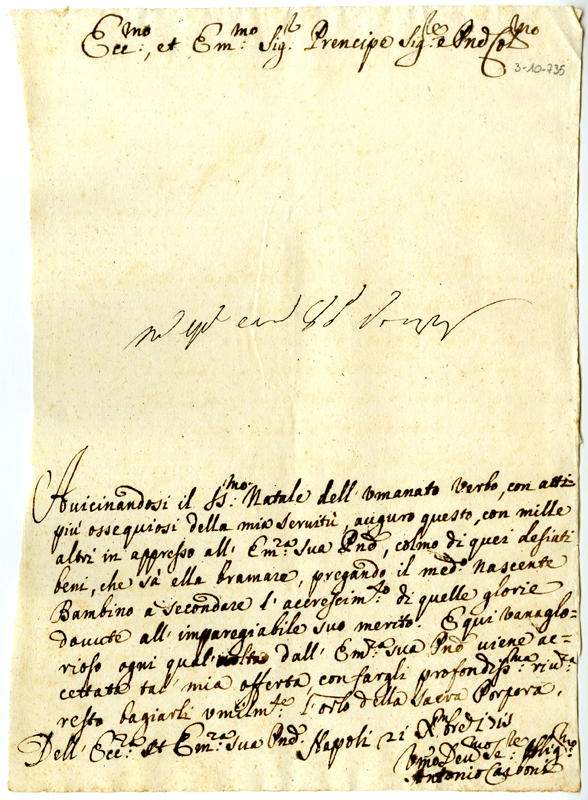 Ecc.mo, et Em.mo Sig.r Prencipe Sig.re e Pnd Col.mo
3-10-735
Avvicinandosi il SS.mo Natale dell' Vmanato Verbo, con atti
più ossequiosi della mia servitù, auguro questo, con mille
altri in appresso all' Em.za Sua Pnd, colmo di quei desiati
beni, che sà ella bramare, pregando il med.o Nascente
Bambino a secondare l' accrescim.to di quelle glorie
dovute all' impareggiabile suo merito. E qui vanaglo-
rioso ogni qual volta dall' Em.za Sua Pnd viene ac-
cettata tal mia offerta con fargli profondiss.ma riv.za
resto bagiarli vmilm.te l'orlo della Sacra Porpora,
Dell' Ecc.za et Em.za Sua Pnd. Napoli 21 Xmbre
Vmo Deu.mo Se.re Oblig.mo
Antonio